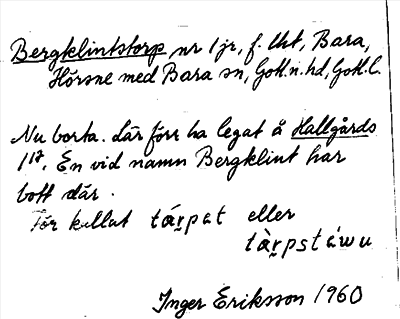 Bergklintstorp nr 1 jr, f. lht, Bara,
Hörsne med Bara sn, Gotl. n. hd, Gotl. l.
Nu borta. Lär förr ha legat å Hallgårds
1¹⁷. En vid namn Bergklint har
bott där.
För kallat tárpet eller
tàrpstáwu
Inger Eriksson 1960